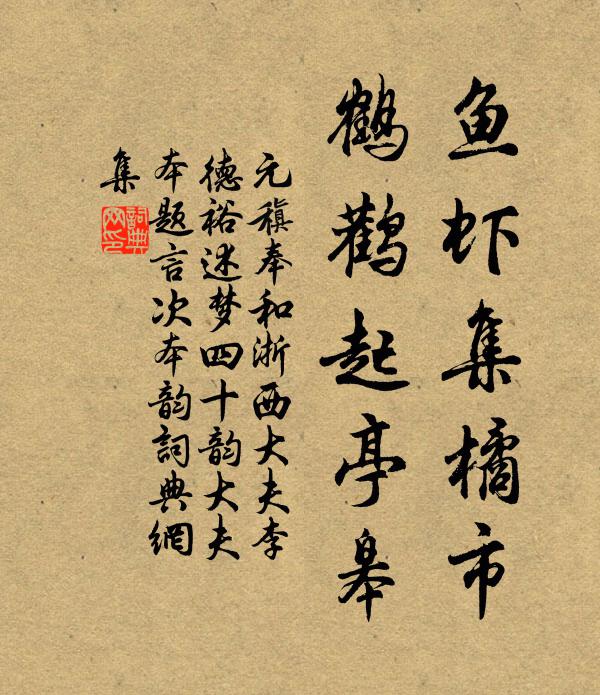 鱼虾集橘市
鹤鹳起亭皋
元稹奉和浙西大夫李
德裕述梦四十韵大夫
本题言次本韵詞典網
集
詞典網印